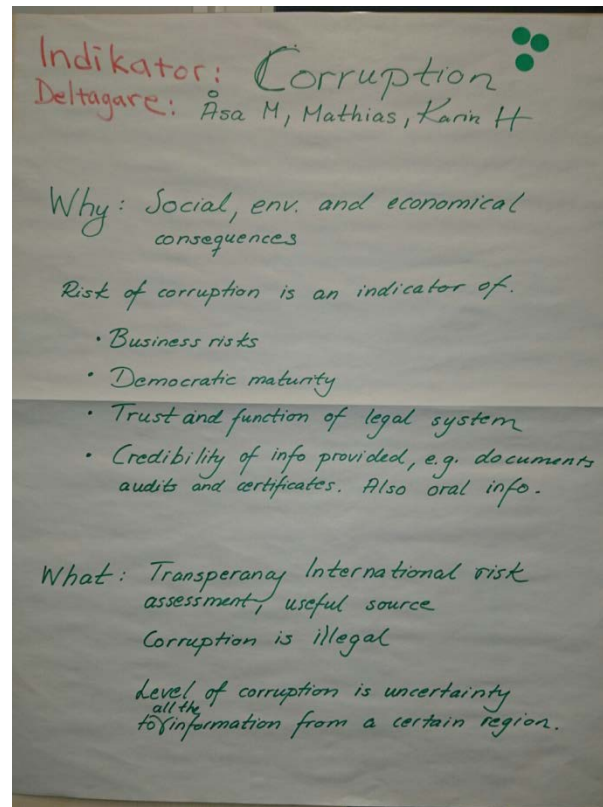 Indikator: Corruption
Deltagare: Åsa M, Mathias, Karin H
Why: Social, env. and economical
consequences
Risk of corruption is an indicator of.
• Business risks
• Democratic maturity
• Trust and function of legal system
• Credibility of info provided, e.g. documents
audits and certificates. Also oral info.
What: Transperancy International risk
assessment, useful source
Corruption is illegal
Level of corruption is uncertainty
all the
to information from a certain region.